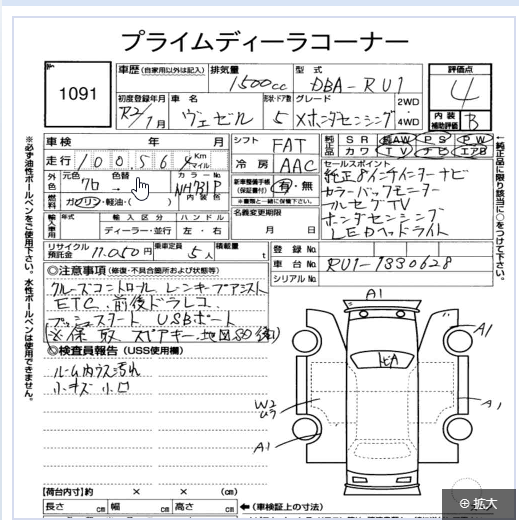 プライムディーラコーナー
1091
車歴 (自家用以外は記入) 排気量 1500cc 型式 DBA-RU1 評価点 4
初度登録年月 R2/1月 車名 ヴェゼル 形状・ドア数 5 グレード Xホンダセンシング 2WD 4WD 内装補助評価 B
車検 年 月 シフト FAT 純正品 SR AW PS PW
カワ TV ナビ エアB
走行 100564 Km マイル 冷房 AAC セールスポイント
外色 元色 クロ → 色替 カラーNo. NH731P 内装色
新車整備手帳 (保証書付) 有・無
※書類と一緒に保管下さい。
燃料 ガソリン・軽油・( )
純正8インチインターナビ
カラーバックモニター
フルセグTV
ホンダセンシング
LEDヘッドライト
輸入車用 年式 輸入区分 ハンドル 名義変更期限
ディーラー・並行 左・右 月 日
リサイクル預託金 11,050円 乗車定員 5人 積載量 t 登録No.
車台No. RU1-1330628
シリアルNo.
◎注意事項 (修復・不具合箇所および状態等)
クルーズコントロール レーンキープアシスト
ETC. 前後ドラレコ
プッシュスタート USBポート
(※保 取 スペアキー 地図SD
◎検査員報告 (USS使用欄)
ルーム内ウス汚れ
小キズ 小凹
A1
A1
A1
W2
A1
【荷台内寸】約 × × (cm)
長さ cm 幅 cm 高さ cm ←(車検証上の寸法)
※必ず油性ボールペンをご使用下さい。水性ボールペンは使用できません。
←純正品に限り該当に○をつけて下さい。
拡大